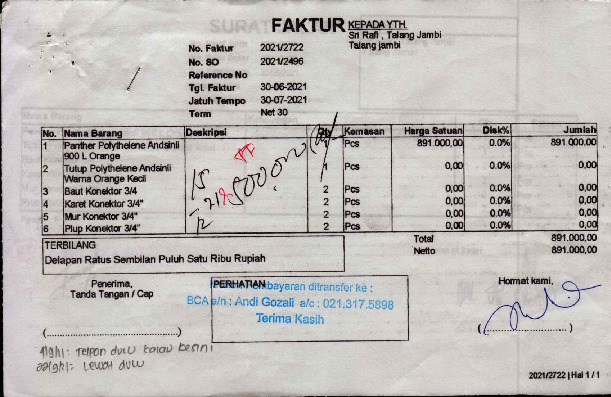 FAKTUR
KEPADA YTH.
Sri Rafi , Talang Jambi
Talang jambi
No. Faktur 2021/2722
No. SO 2021/2496
Reference No
Tgl. Faktur 30-06-2021
Jatuh Tempo 30-07-2021
Term Net 30
No. Nama Barang Deskripsi Qty Kemasan Harga Satuan Disk% Jumlah
1 Panther Polythelene Andsinli 900 L Orange Pcs 891.000,00 0.0% 891.000,00
2 Tutup Polythelene Andsinli Warna Orange Kecil Pcs 0,00 0.0% 0,00
3 Baut Konektor 3/4 2 Pcs 0,00 0.0% 0,00
4 Karet Konektor 3/4" 2 Pcs 0,00 0.0% 0,00
5 Mur Konektor 3/4" 2 Pcs 0,00 0.0% 0,00
6 Plup Konektor 3/4" 2 Pcs 0,00 0.0% 0,00
TERBILANG
Delapan Ratus Sembilan Puluh Satu Ribu Rupiah
Total 891.000,00
Netto 891.000,00
Penerima,
Tanda Tangan / Cap
PERHATIAN
Pembayaran ditransfer ke :
BCA a/n : Andi Gozali a/c : 021.317.5898
Terima Kasih
Hormat kami,
(..............................)
(..............................)
Telpon dulu kalau
Lewah dulu
2021/2722 | Hal 1 / 1